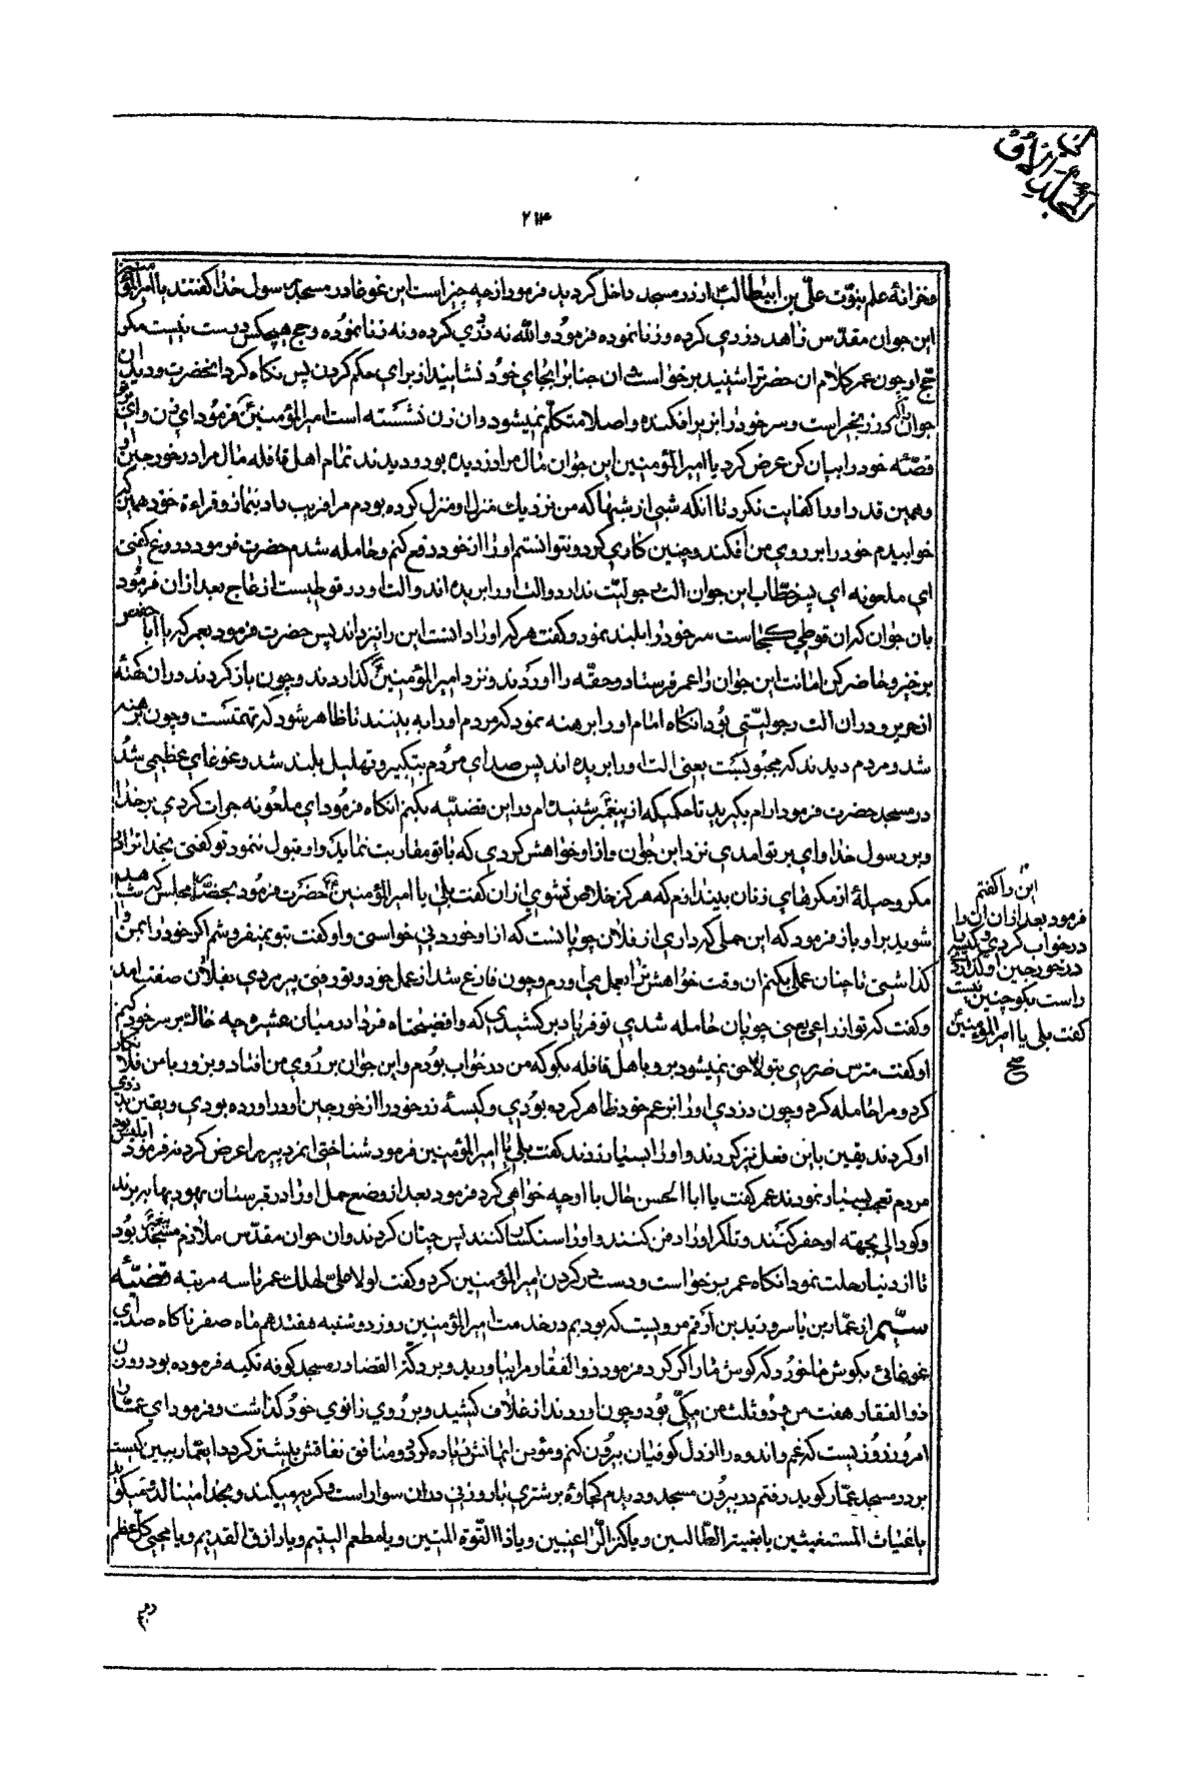 من
المجلد الاول
۲۱۳
و خزانهٔ علم نبوّت علیّ بن ابیطالب از در مسجد داخل کردید فرمود از چه چیز است این غوغا در مسجد رسول خدا گفتند یا امیرالمؤمنین
این جوان مقدّس زاهد دزدی کرده و زنا نموده فرمود والله نه دزدی کرده و نه زنا نموده و حج هیچکس درست نیست مکر
حج او چون عمر کلام ان حضرترا شنید برخواست ان جنابرا بجای خود نشانید از برای حکم کردن پس نکاه کرد انحضرت و دید ان
جوان را که در زنجیر است و سر خود را بزیر افکنده و اصلا متکلّم نمیشود و ان زن نشسته است امیرالمؤمنین فرمود ای زن وای بر تو
قصّهٔ خود را بیان کن عرض کرد یا امیرالمؤمنین این جوان مال مرا دزدیده بود و دیدند تمام اهل قافله مال مرا در خورجین او
و همین قدر او را کفایت نکرد تا انکه شبی از شبها که من نزدیک منزل او منزل کرده بودم مرا فریب داد بنماز و قراءة خود همین که
خوابیدم خود را بر روی من افکند و چنین کاری کرد و نتوانستم او را از خود دفع کنم و حامله شدم حضرت فرمود دروغ گفتی
ای ملعونه ای پسر خطّاب این جوان الت رجولیّت ندارد و الت او را بریده اند و الت او در قوطیست از عاج بعد از ان فرمود
بان جوان که ان قوطی کجاست سر خود را بلند نمود و گفت هر که او را دانست این را نیز داند پس حضرت فرمود بعمر که یا ابا حفص
برخیز و حاضر کن امانت این جوان را عمر فرستاد و حقّه را اوردند و نزد امیرالمؤمنین گذاردند و چون باز کردند دران کهنهٔ
از حریر و دران الت رجولیّتی بود انکاه امام او را برهنه نمود که مردم او را به بینند تا ظاهر شود که تهمتست و چون برهنه
شد و مردم دیدند که مجبوبست یعنی الت او را بریده اند پس صدای مردم بتکبیر و تهلیل بلند شد و غوغای عظیمی شد
در مسجد حضرت فرمود ارام بکیرید تا حکمیکه از پیغمبر شنیده ام در این قضیّه بکنم انکاه فرمود ای ملعونه جرات کردی بر خدا
و بر رسول خدا وای بر تو امدی نزد این جوان و از او خواهش کردی که با تو مقاربت نماید و او قبول ننمود تو گفتی بخدا ترا در
مکر و حیلهٔ از مکرهای زنان بیندازم که هرکز خلاص نشوی از ان گفت بلی یا امیرالمؤمنین حضرت فرمود بحضّار مجلس که شاهد
شوید بر او باز فرمود که این حملی که داری از فلان چوپانست که از او خوردنی خواستی و او گفت بتو نمیفروشم اکر خود را بمن وا
کذاشتی تا چنان عملی بکنم ان وقت خواهش ترا بعمل می اورم و چون فارغ شد از عمل خود و تو رفتی پیرمردی بفلان صفت امد
و گفت که تو از راعی یعنی چوپان حامله شدی تو فریاد بر کشیدی که وافضیحتاه فردا در میان عشیره چه خاک بر سر خود کنم
او گفت مترس ضرری بتو لاحق نمیشود برو با هل قافله بکو که من در خواب بودم و این جوان بر روی من افتاد و بزور با من فلان کار
کرد و مرا حامله کرد و چون دزدی او را بزعم خود ظاهر کرده بودی و کیسهٔ زر خود را از خورجین او در اورده بودی و یقین بدزدی
او کردند یقین باین فعل نیز کردند و او را بسیار زدند گفت بلی یا امیرالمؤمنین فرمود شناختی انمرد پیر را عرض کرد نه فرمود ابلیس بود
مردم تعجب بسیار نمودند عمر گفت یا ابا الحسن حال با او چه خواهی کرد فرمود بعد از وضع حمل او را در قبرستان یهودیها ببرند
و کودالی بجهته او حفر کنند و تا کمر او را دفن کنند و او را سنکسار کنند پس چنان کردند و ان جوان مقدّس ملازم مسجد بود
تا از دنیا رحلت نمود انکاه عمر برخواست و دست در کردن امیرالمؤمنین کرد و گفت لولا علیّ لهلک عمر تا سه مرتبه قضیّهٔ
سیّم از عمّار بن یاسر و زید بن ارقم مرویست که بودیم در خدمت امیرالمؤمنین روز دوشنبه هفتدهم ماه صفر ناکاه صدای
غوغائی بکوش ما خورد که گوش ما را کر کرد فرمود ذوالفقار مرا بیاورید و بر دکّة القضا در مسجد کوفه تکیه فرموده بود و وزن
ذوالفقار هفت من و دو ثلث من مکّی بود و چون اوردند از غلاف کشید و بر روی زانوی خود گذاشت و فرمود ای عمّار
امروز روزیست که غم و اندوه را از دل کوفیان بیرون کنم و مؤمن ایمانش زیاده کردد و منافق نفاقش بیشتر کردد ای عمّار ببین کیست
بر در مسجد عمّار کوید رفتم در بیرون مسجد و دیدم کجاوهٔ بر شتری بار و زنی دران سوار است و کریه میکند و بخدا مینالد و میکوید
یا غیاث المستغیثین یا بغیة الطّالبین و یا کنز الرّاغبین و یا ذا القوّة المتین و یا مطعم الیتیم و یا رازق القدیم و یا محیی کلّ عظم
این را کفتم
فرمود بعد از ان ان را
در خواب کردی و کیسه را
در خورجین او گذاردی
راست بکو چنین نیست
گفت بلی یا امیرالمؤمنین
صح
رمیم